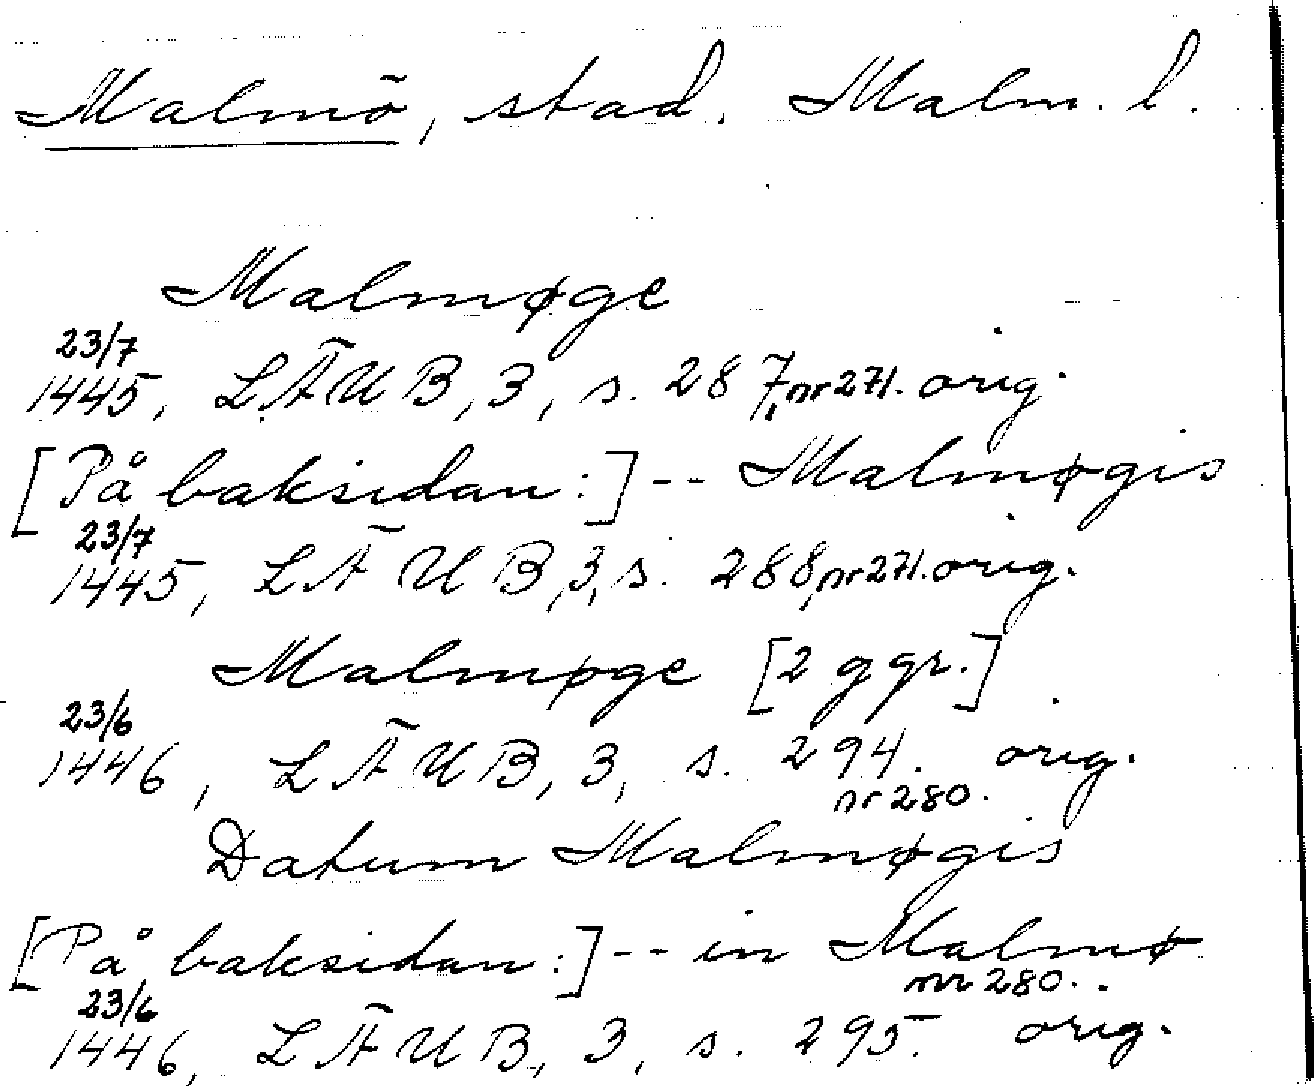 Malmö, stad. Malm. l.
Malmøge
23/7
1445, LÄUB, 3, s. 287, nr 271. orig.
[På baksidan:] -- Malmøgis
23/7
1445, LÄUB, 3, s. 288, nr 271. orig.
Malmøge [2 ggr.]
23/6
1446, LÄUB, 3, s. 294. orig.
nr 280.
Datum Malmøgis
[På baksidan:] -- in Malmø
nr 280.
23/6
1446, LÄUB, 3, s. 295. orig.